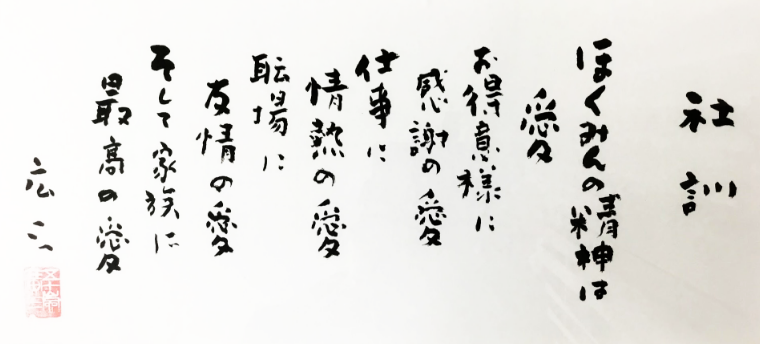 社訓
ほくみんの精神は
愛
お得意様に
感謝の愛
仕事に
情熱の愛
職場に
友情の愛
そして家族に
最高の愛
広三